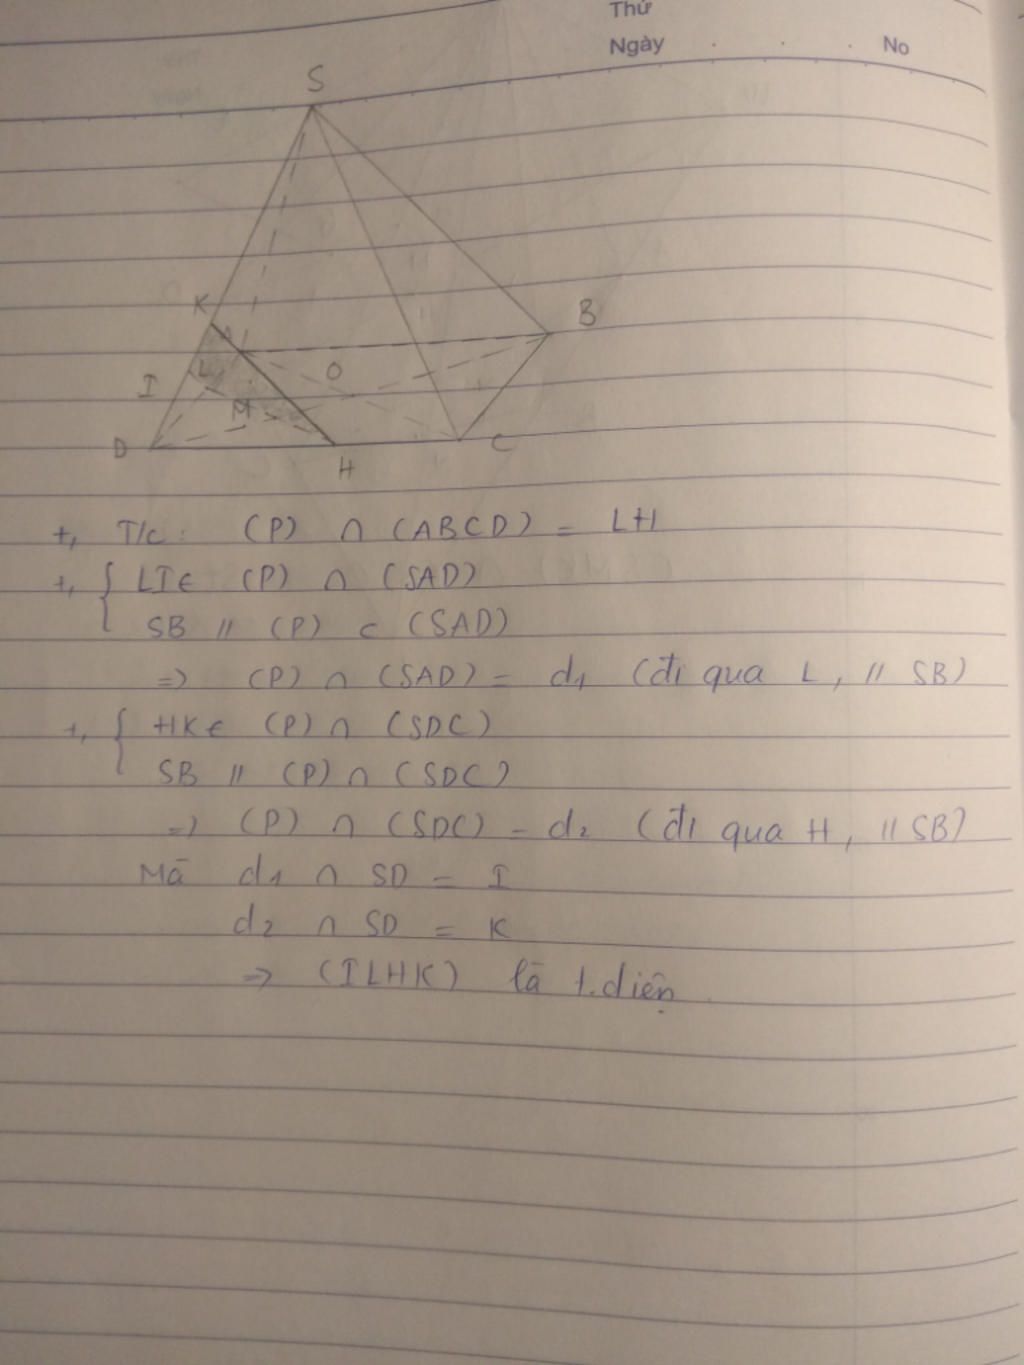 Thứ
Ngày . . . No
S
K
B
I
L
O
M
D
H
C
+, T/c: (P) ∩ (ABCD) = LH
+, { LI ∈ (P) ∩ (SAD)
SB // (P) ⊂ (SAD)
=> (P) ∩ (SAD) = d1 (đi qua L, // SB)
+, { HK ∈ (P) ∩ (SDC)
SB // (P) ∩ (SDC)
=> (P) ∩ (SDC) = d2 (đi qua H, // SB)
Mà d1 ∩ SD = I
d2 ∩ SD = K
=> (ILHK) là t.diện.